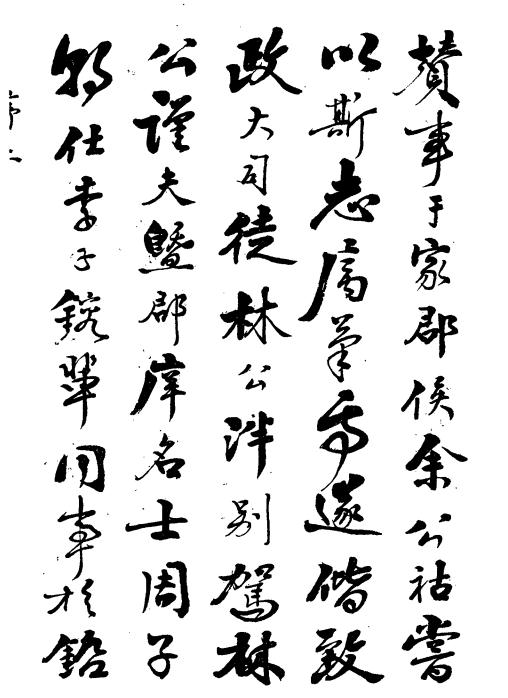 贊事于家郡侯余公祜嘗
以斯志属遂偕致
政大司徒林公泮别駕林
公謹夫暨郡庠名士周子
朝仕李子輩同事於